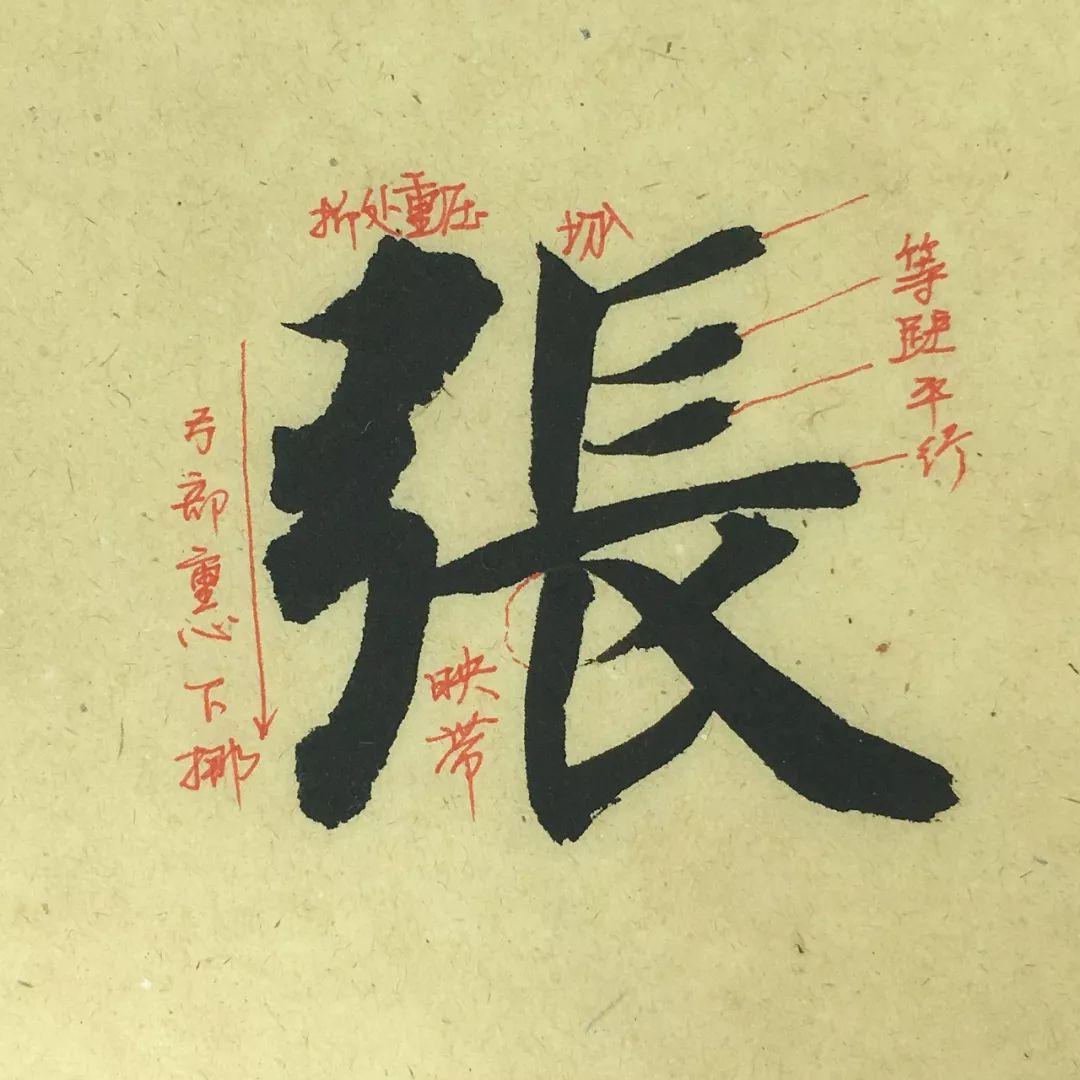 折处重压
切入
張
等距平行
弓部重心下挪
映带